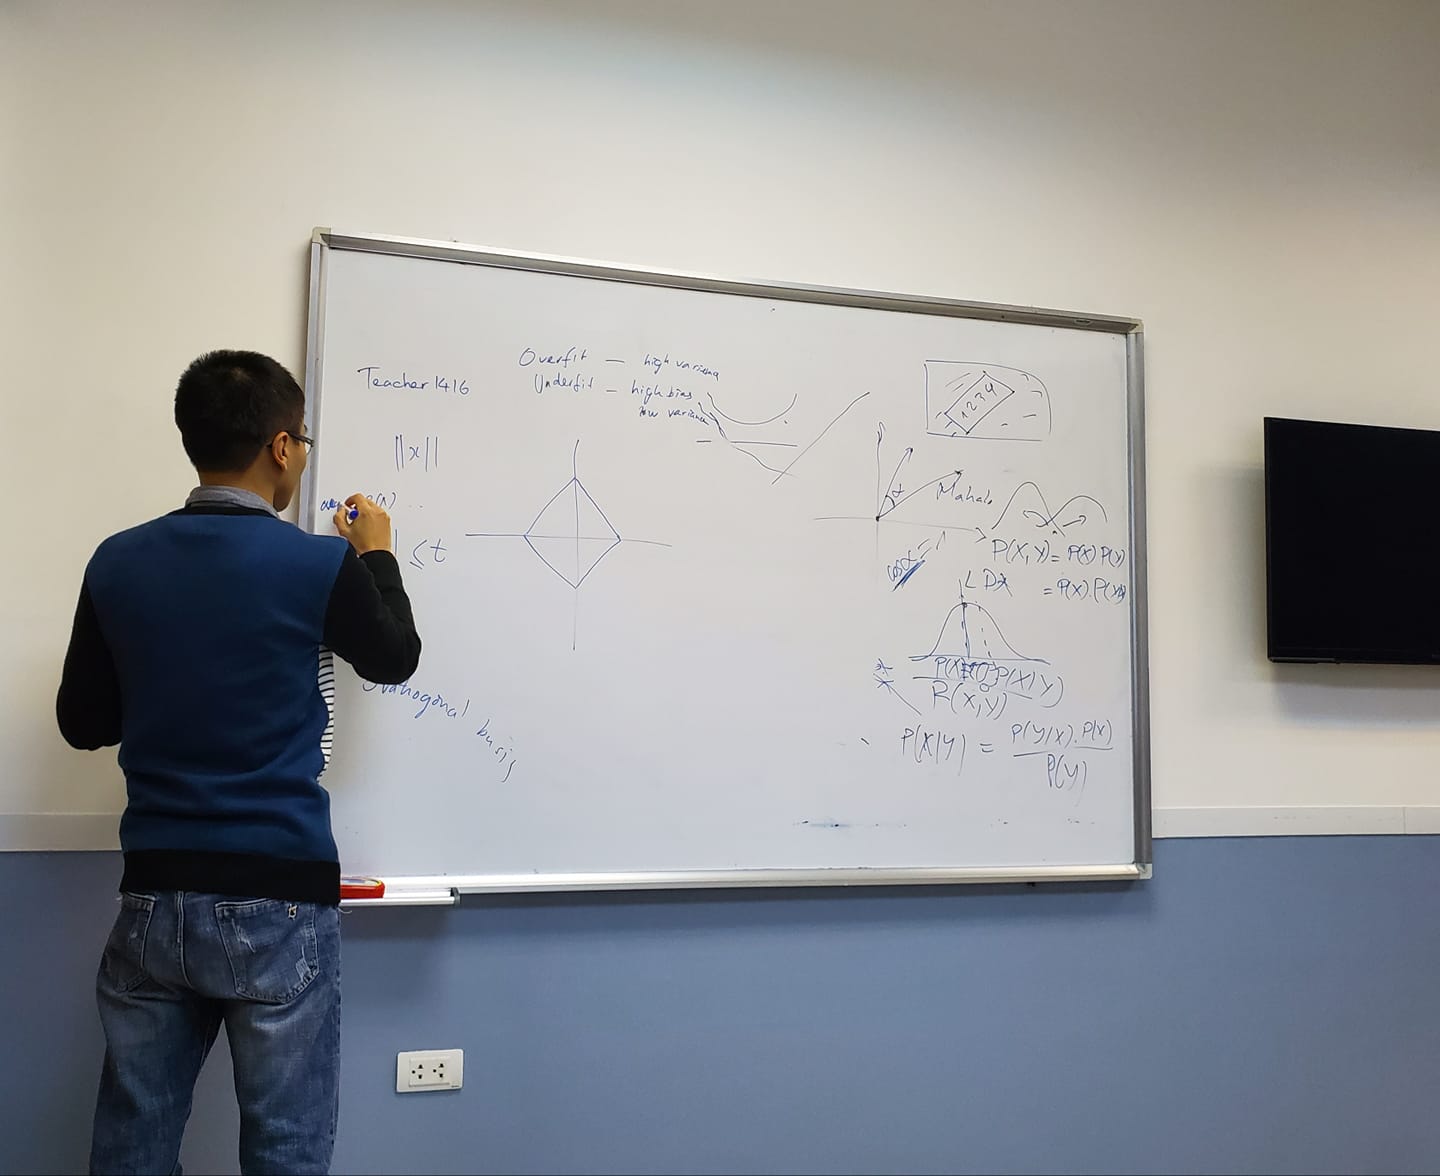 Teacher 1416
Overfit — high variance
Underfit — high bias
low variance
||x||
≤ t
Orthogonal basis
1234
α
Mahal
cosα
P(X,Y) = P(X) P(Y)
LDA
= P(X).P(Y)
P(X|Y)
P(X,Y)
P(X|Y) = P(Y|X).P(X)
P(Y)